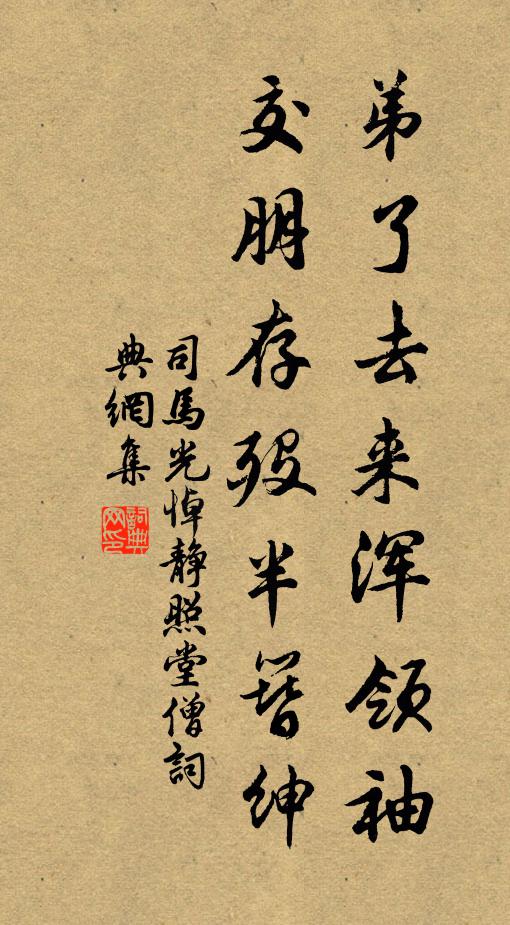 弟了去来浑领袖
交朋存殁半簪绅
司馬光悼静照堂僧詞
典網集
詞典
网印